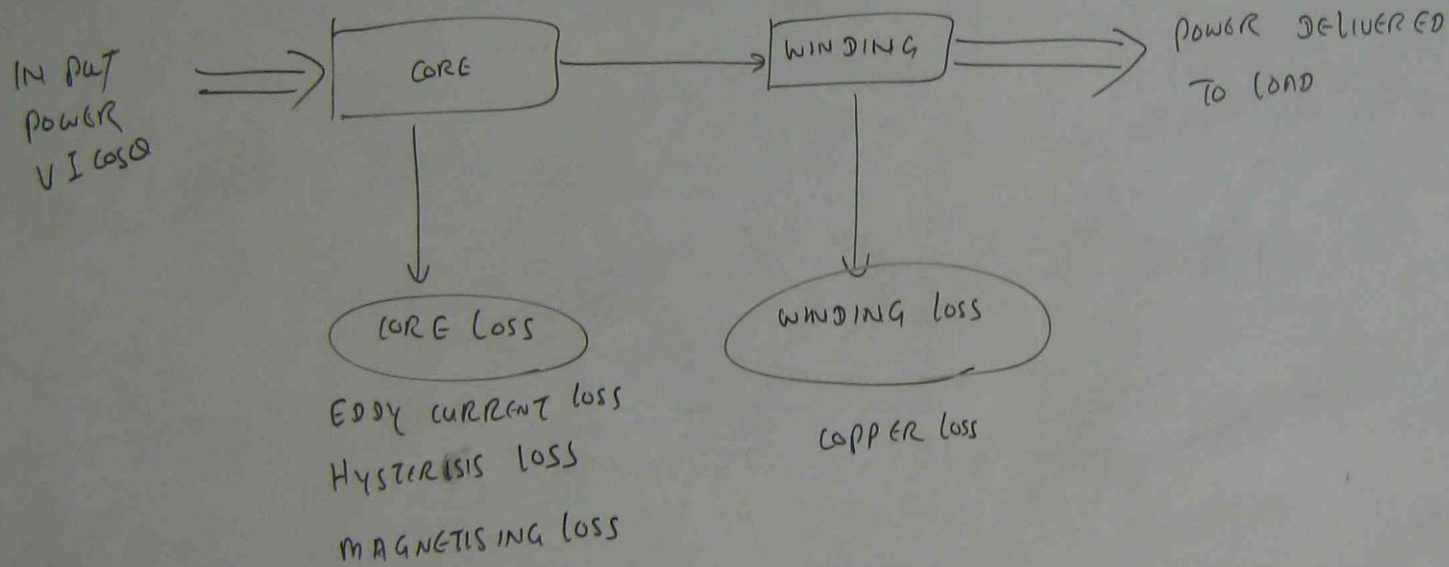 IN PUT
POWER
VI cosθ
CORE
WINDING
POWER DELIVERED
TO LOAD
CORE LOSS
WINDING LOSS
EDDY CURRENT LOSS
HYSTERISIS LOSS
MAGNETISING LOSS
COPPER LOSS